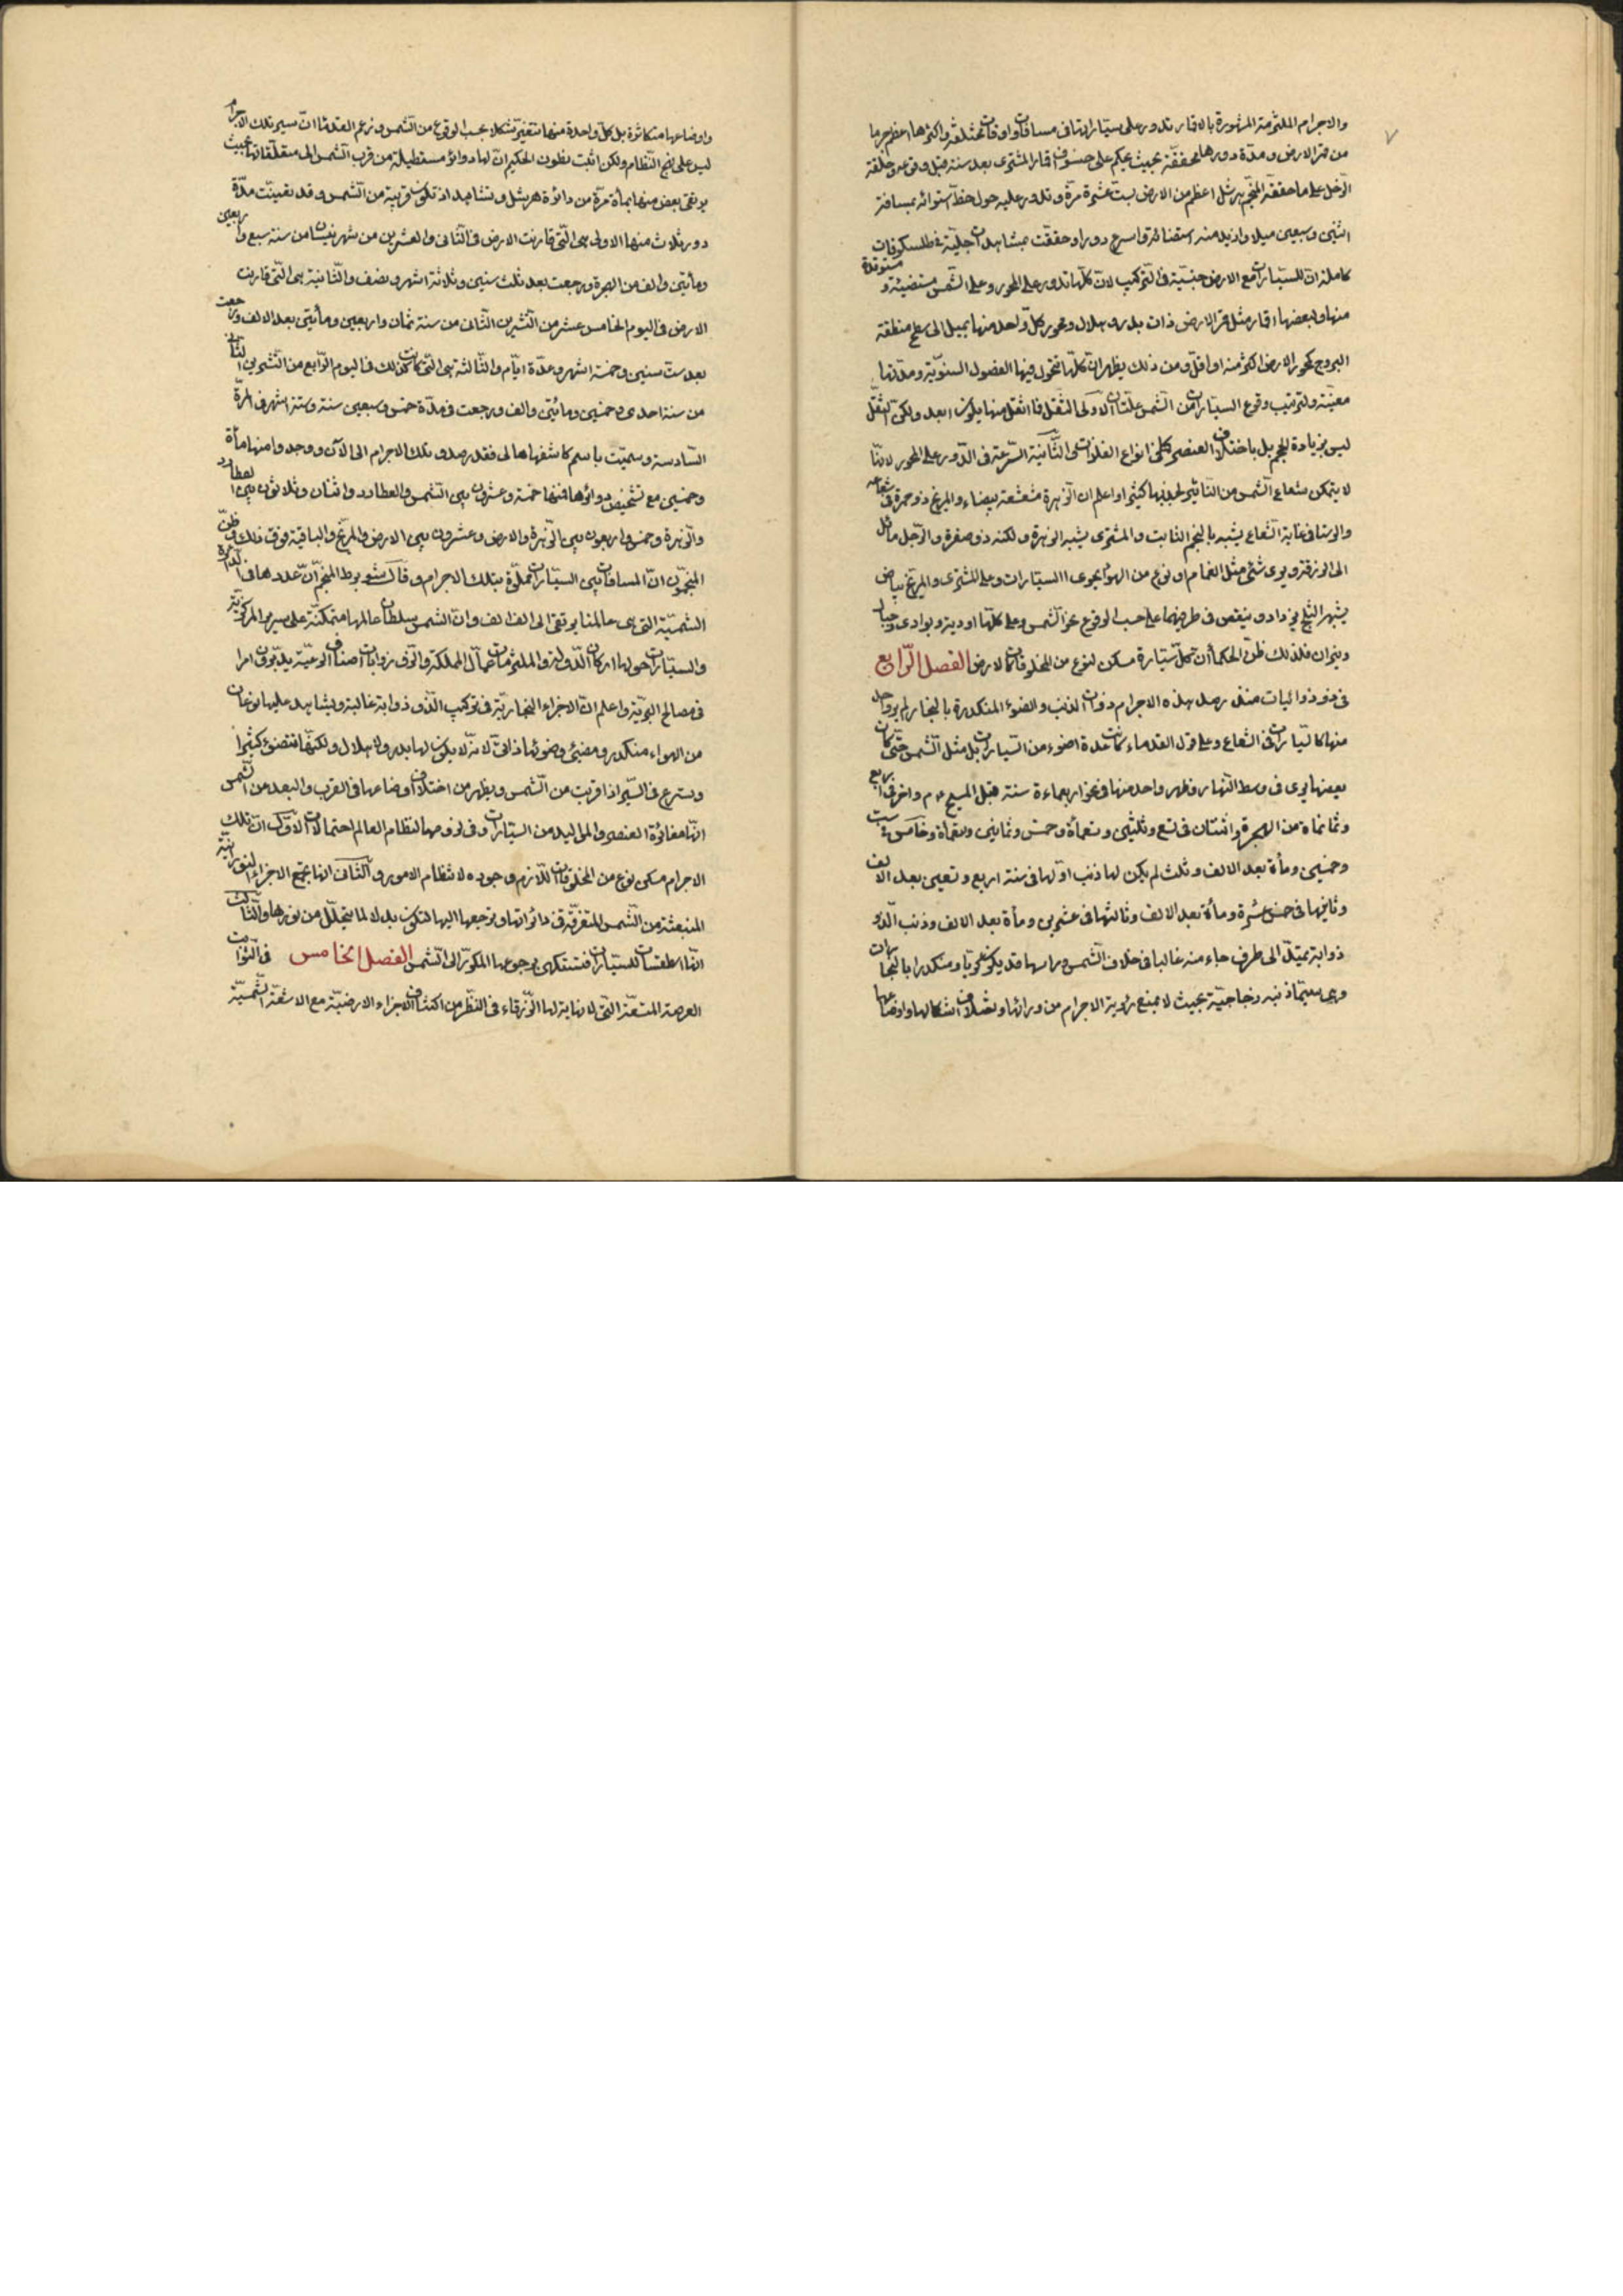 والاجرام الملتزمة المشهورة بالاقمار تدور على سياراتها فى مسافات واوقات مختلفة واكثرها اعظم جرما
من قمر الارض ومدة دورها محققة بحيث يحكم على خسوف اقمار المشترى بعد سنة قبل وقوعه وحلقة
الزحل على ما حققه المنجم هرشل اعظم من الارض بست عشرة مرة وتدور عليه حول خط استوائه بمسافة
اثنين وسبعين ميلا وازيد منه استضائة واسرع دورا وحققت بمشاهدات جلية فى طلسكوفات
كاملة ان للسيارات مع الارض جنسية فى التركيب لان كلها تدور على المحور وعلى الشمس مستضيئة و مستوقدة
منها ولبعضها اقمار مثل قمر الارض ذات بدر وهلال ومحور كل واحد منها يميل الى سطح منطقة
البروج كمحور الارض اكثر منه او اقل ومن ذلك يظهر ان كلها تتحول فيها الفصول السنوية ومدتها
معينة ولترتيب وقوع السيارات من الشمس علتان الاولى الثقل فما اثقل منها يكون ابعد ولكن الثقل
ليس بزيادة الحجم بل باختلاف العنصر كما فى انواع الفلزات والثانية السرعة فى الدور على المحور لانها
لا يتمكن شعاع الشمس من التاثير لجذبها كثيرا واعلم ان الزهرة مشعشعة بيضاء والمريخ ذو حمرة فى شعاعه
والى غاية الشعاع يشبه بالنجم الثابت والمشترى يشبه الزهرة ولكنه ذو صفرة والزحل مائل
الى الزرقة ويرى شئ مثل الغمام او نوع من الهواء يحوى السيارات وعلى المشترى والمريخ بياض
يشبه الثلج يزداد وينقص فى طرفيهما على حسب الوقوع نحو الشمس وعلى كلها اودية وبوادى وجبال
ونيران فلذلك ظن الحكماء ان كل سيارة مسكن لنوع من المخلوقات كالارض الفصل الرابع
فى ذو ذوائبات منذ رصد هذه الاجرام ذوات الذنب والضوء المنكدرة بالبخار لم يوجد
منها كالسيارات فى الشعاع وعلى قول القدماء كانت عدة اضوء من السيارات بل مثل الشمس حتى كان
بعضها يرى فى وسط النهار وظهر واحد منها فى نحو اربعماءة سنة قبل المسيح واخر فى اربع
وثمانماة من الهجرة واثنتان فى تسع وثلثين وتسعمأة وخمس وثمانين وتسعمأة وخامس فى ست
وخمسين ومأة بعد الالف وثلث لم يكن لها ذنب اولها فى سنة اربع وتسعين بعد الالف
وثانيها فى خمس عشرة ومأة بعد الالف وثالثها فى عشرين ومأة بعد الالف وذنب الذو
ذوابة يمتد الى طرف جاء منه غالبا فى خلاف الشمس وراسها قد يكون نحويا ومنكدرا بالبخارات
وهى سيما ذنبه زجاجية بحيث لا يمنع رؤية الاجرام من ورائها واختلاف اشكالها واوضاعها
واوضاعها متكاثرة بل كل واحدة منها تتغير تشكلا بحسب الوقوع من الشمس وزعم القدماء ان سير تلك الاجرام
ليس على نهج النظام ولكن اثبت نطون الحكيم ان لها دوائر مستطيلة من قرب الشمس الى متعلقاتها بحيث
يرتقى بعض منها بمأة مرة من دائرة هرشل وتشاهد اذ تكون قريبة من الشمس وقد تعينت مدة
دور ثلاث منها الاولى هى التى قارنت الارض فى الثانى والعشرين من شهر نيسان من سنة سبع واربعين
ومأتين والف من الهجرة ورجعت بعد ثلث سنين وثلاثة اشهر ونصف والثانية هى التى قارنت
الارض فى اليوم الخامس عشر من التشرين الثانى من سنة ثمان واربعين ومأتين بعد الالف ورجعت
بعد ست سنين وخمسة اشهر ومدة ايام والثالثة هى التى كانت كذلك فى اليوم الرابع من التشرين الثانى
من سنة احدى وخمسين ومائتين والف ورجعت فى مدة خمس وسبعين سنة وستة اشهر فى المرة
السادسة وسميت باسم كاشفها هالى فقد رصدوا تلك الاجرام الى الآن ووجدوا منها مأة
وخمسين مع تشخيص دوائرها فمنها خمسة وعشرون بين الشمس والعطارد واثنان وثلاثون بين العطارد
والزهرة وخمس واربعون بين الزهرة والارض وعشرون بين الارض والمريخ والباقية فوق ذلك وظن
المنجمون ان المسافات بين السيارات مملوة بتلك الاجرام وقال شوبوط المنجم ان عددها فى الدائرة
الشمسية التى هى عالمنا يرتقى الى الف الف وان الشمس سلطان عالمها متمكنة على سرير المركزية
والسيارات حولها اركان الدولة والملتزمات عمال المملكة والذو ذوابات اصناف الرعية يدبرون امرا
فى مصالح البرية واعلم ان الاجزاء البخارية فى تركيب الذو ذوابة غالبة ويشاهد عليها نوعان
من الهواء منكدر ومضئ وضوئها ذاتى لانه لا يكون لها بدر ولا هلال ولكنها تتضوء كثيرا
وتسرع فى السير اذا قربت من الشمس ويظهر من اختلاف اوضاعها فى القرب والبعد من الشمس
انها مغائرة العنصر والمواليد من السيارات وفى لزومها لنظام العالم احتمالات الاول ان تلك
الاجرام مسكن نوع من المخلوقات اللازم وجوده لانتظام الامور والثانى انها تجمع الاجزاء النورانية
المنبعثة من الشمس المتفرقة فى دائراتها وترجعها اليها لتكون بدلا لما يتحلل من نورها والثالث
انها اطقسات للسيارات فتستفكهى برجوعها المكرر الى الشمس الفصل الخامس فى الثوابت
العرصة المتسعة التى لا نهاية لها الزرقاء فى النظر من اكتشاف الاجزاء الارضية مع الاشعة الشمسية